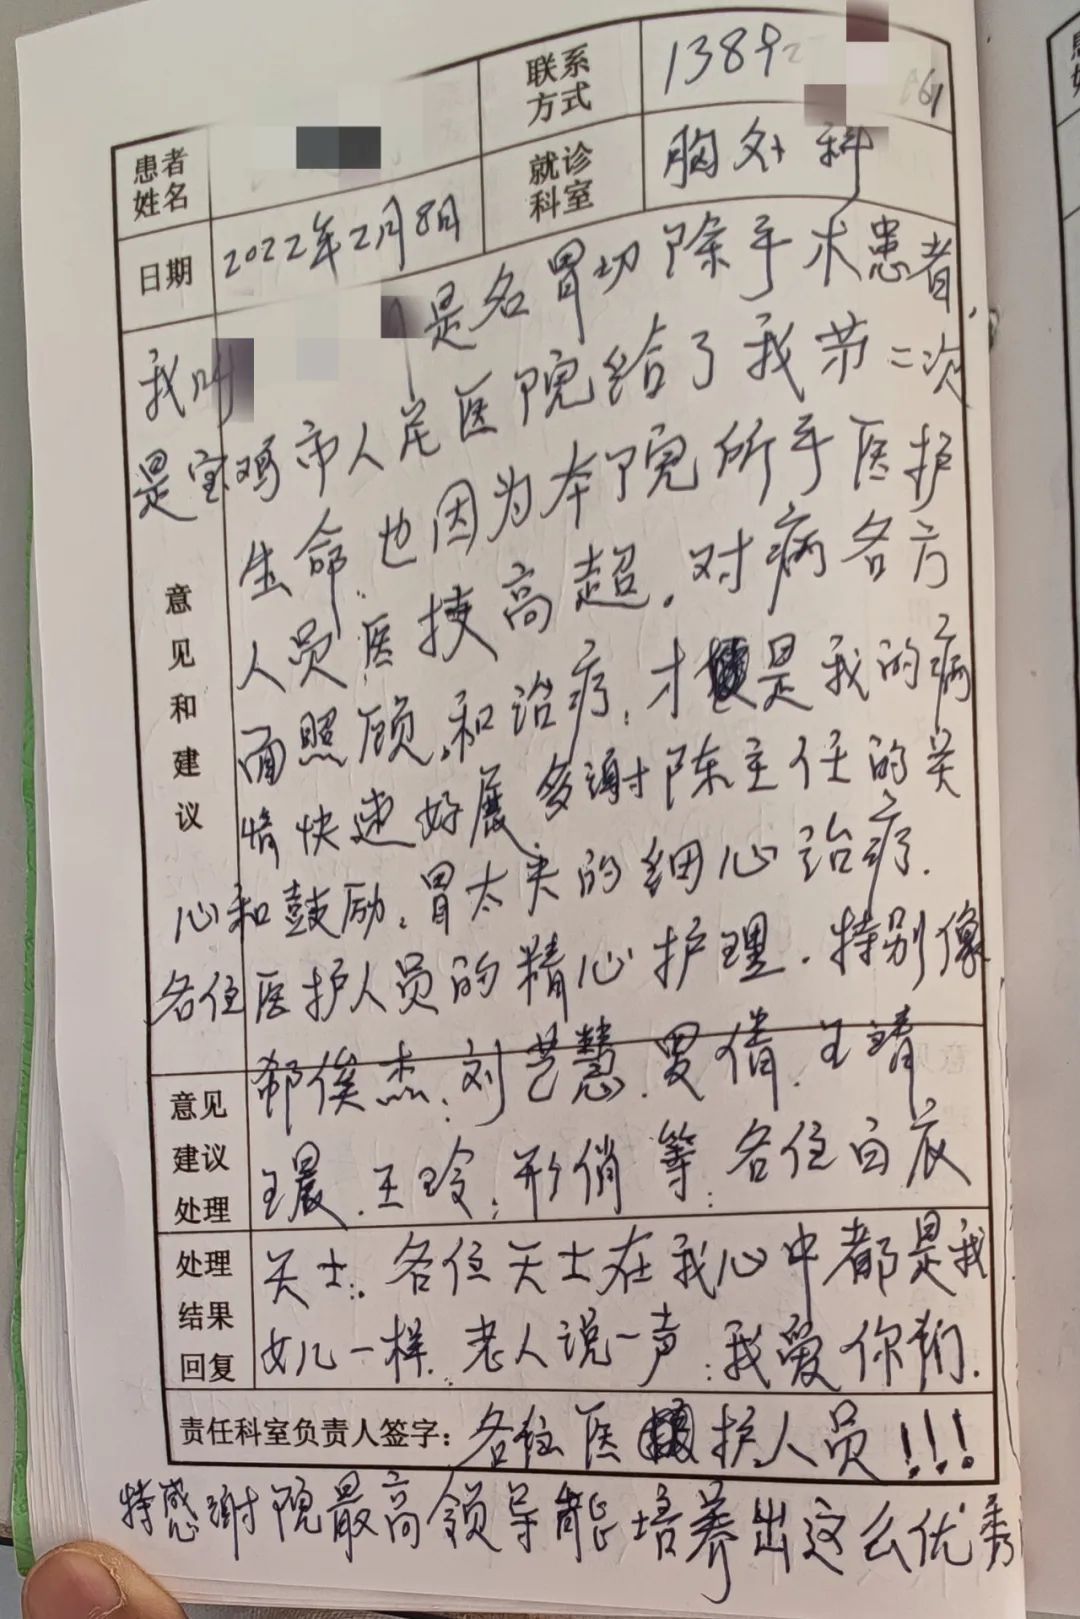 联系方式 1389 61
患者姓名
就诊科室 胸外科
日期 2022年2月8日
意见和建议
我叫 是名胃切除手术患者,
是宝鸡市人民医院给了我第二次
生命.也因为本院所手医护
人员医技高超.对病各方
面照顾,和治疗,才是我的病
情快速好展.多谢陈主任的关
心和鼓励,胃太夫的细心治疗.
各住医护人员的精心护理.特别像
意见建议处理
郗俟杰,刘艺慧.倩.王靖
晨.王玲,形俏等,各住白衣
处理结果回复
天士,各住天士在我心中都是我
女儿一样.老人说一声:我爱你们.
责任科室负责人签字: 各位医护人员!!!
特感谢院最高领导能培养出这么优秀